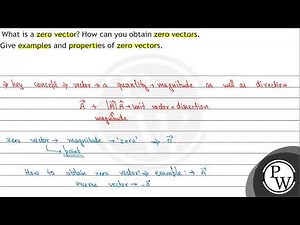 What is a zero vector? How can you obtain zero vectors.
Give examples and properties of zero vectors.
⇒ key concept ⇒ vector → a quantity → magnitude as well as direction
A⃗ + |A⃗| Â → unit vector → direction
magnitude
zero vector → magnitude → 'zero' ⇒ o⃗
point
How to obtain zero vector? ⇒ example: → A⃗
inverse vector → -A⃗
PW